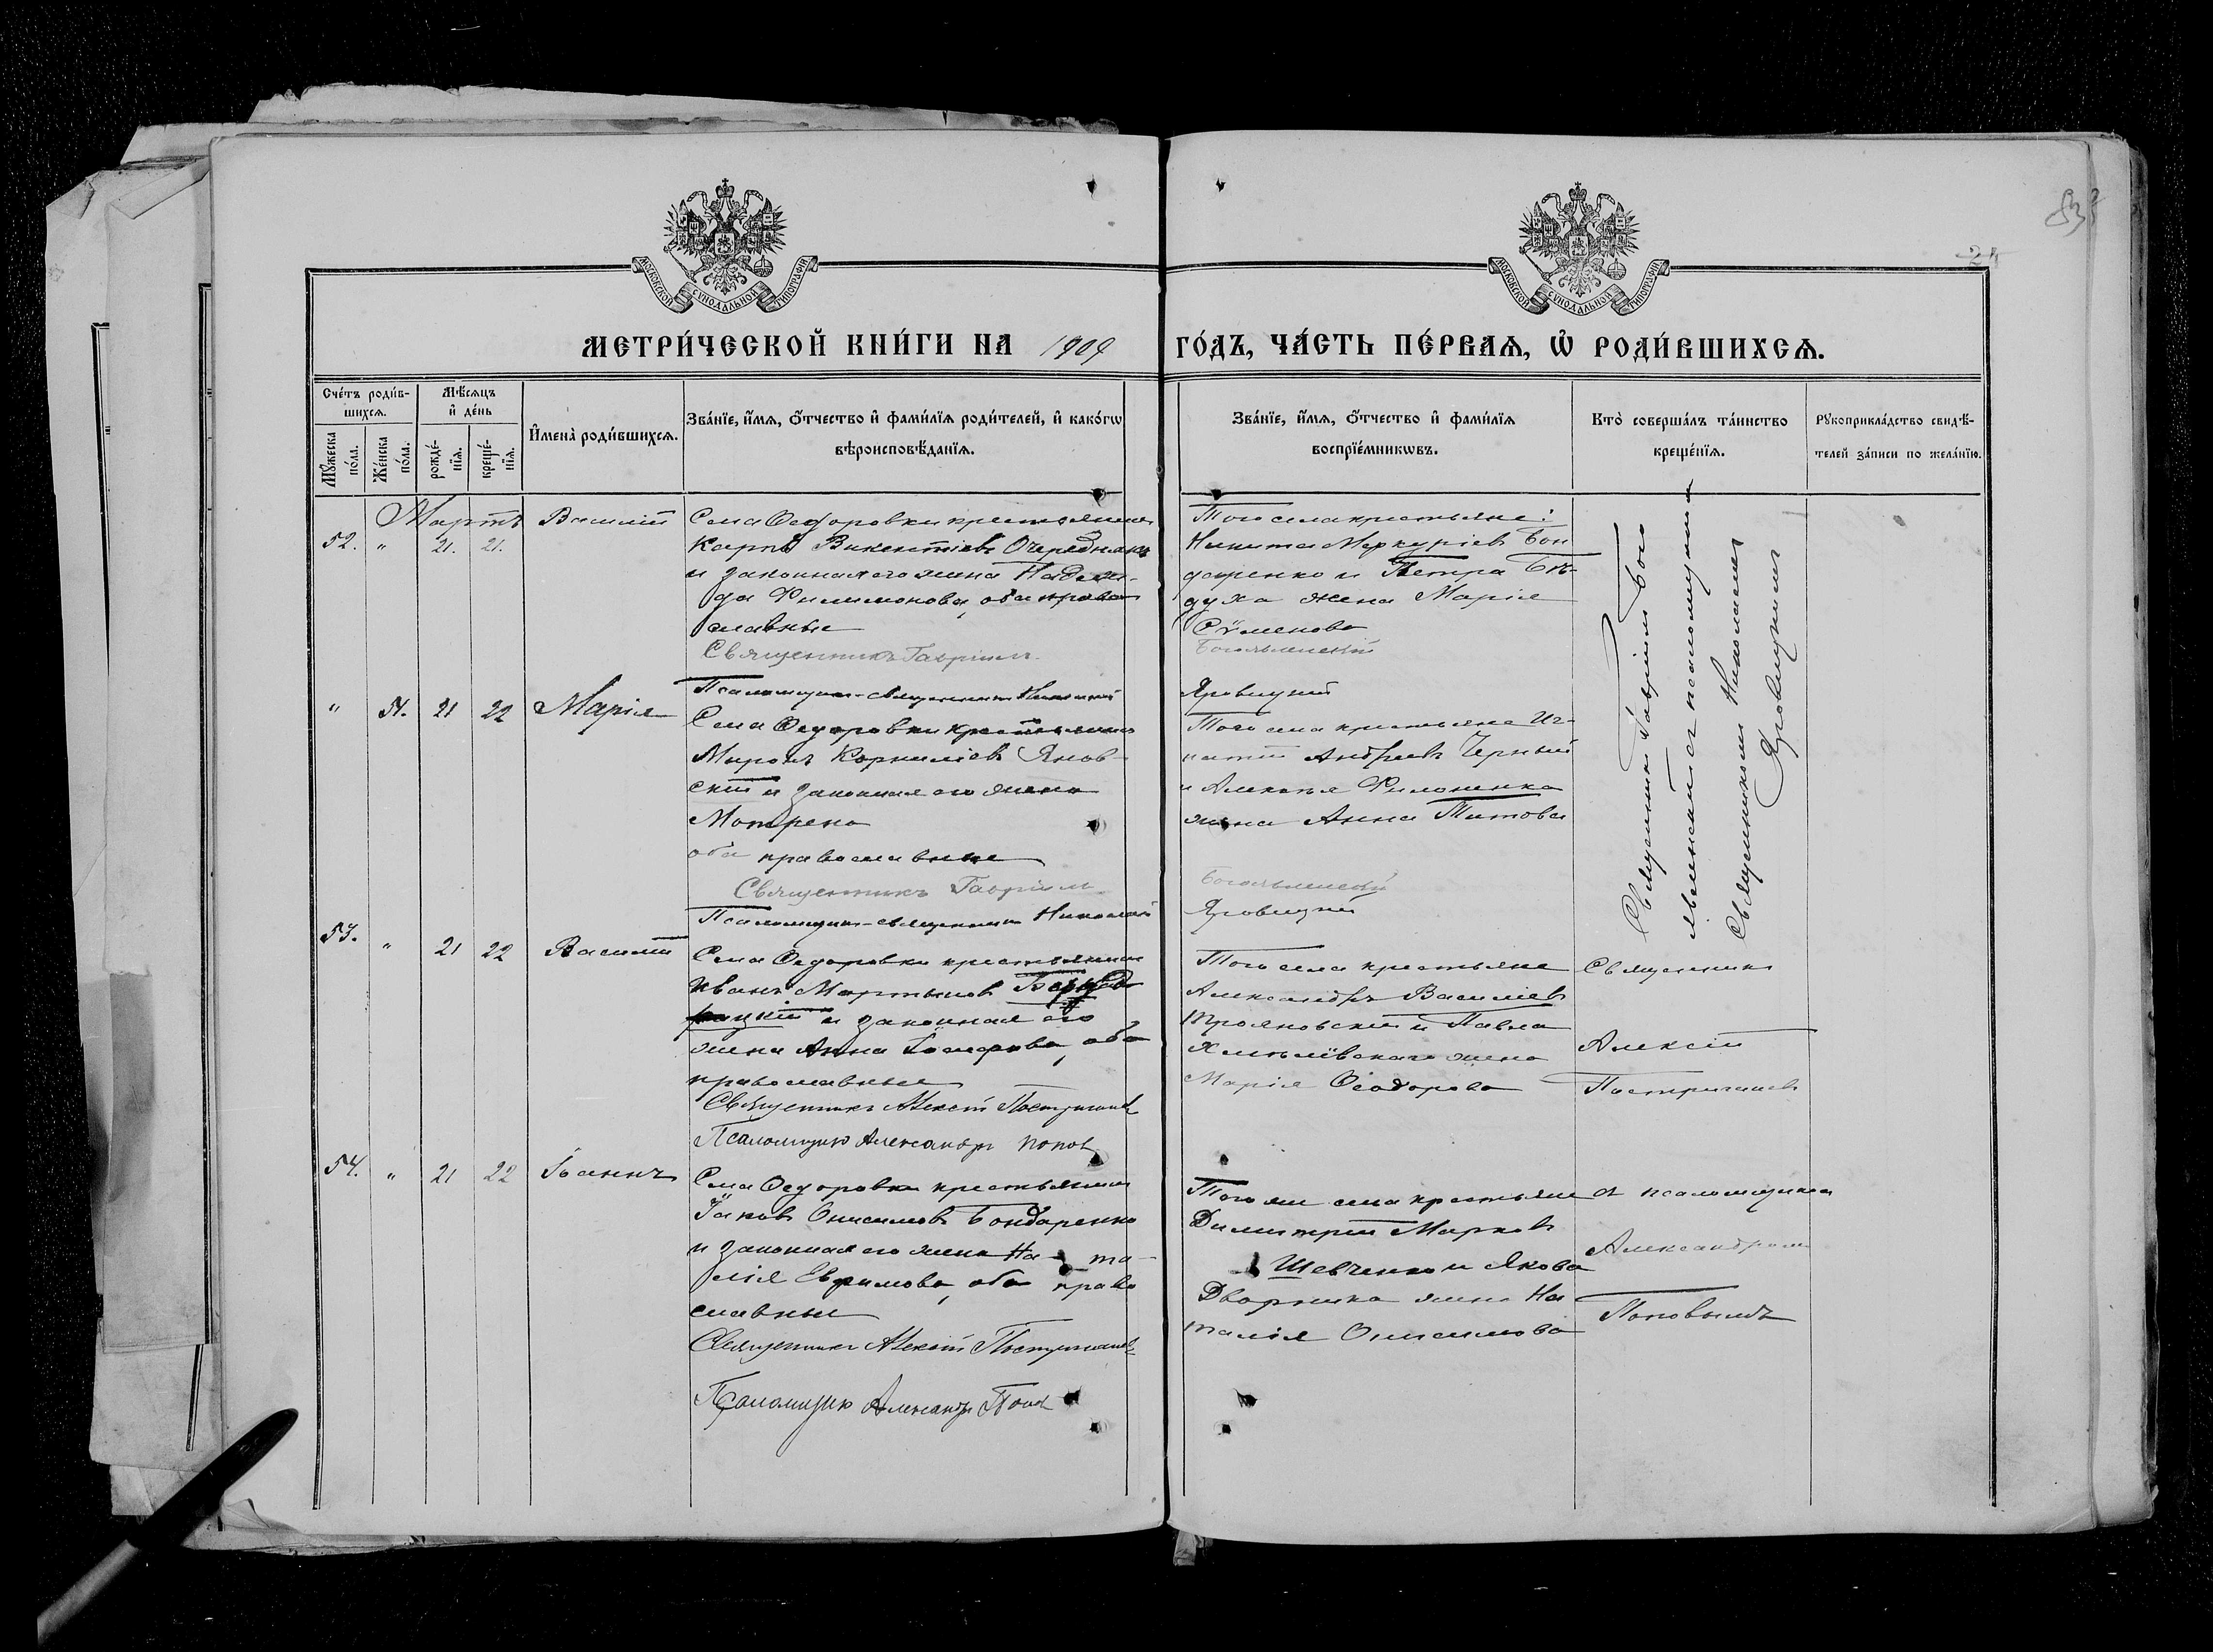 МОСКОВСКОЙ СѴНОДАЛЬНОЙ ТИПОГРАФІИ
МОСКОВСКОЙ СѴНОДАЛЬНОЙ ТИПОГРАФІИ
24
МЕТРИ́ЧЕСКОЙ КНИ́ГИ НА 1909 ГО́ДЪ, ЧА́СТЬ ПЕ́РВАѦ, Ѡ҆ РОДИ́ВШИХСѦ.
Сче́тъ роди́в-
шихсѧ.
Мꙋ́жеска
по́ла.
Же́нска
по́ла.
Мѣ́сѧцъ
и҆ де́нь
рожде́-
нїѧ.
креще́-
нїѧ.
И҆мена̀ роди́вшихсѧ.
Зва́нїе, и҆́мѧ, ѻ҆́тчество и҆ фами́лїѧ роди́телей, и҆ како́гѡ
вѣроисповѣ́данїѧ.
Зва́нїе, и҆́мѧ, ѻ҆́тчество и҆ фами́лїѧ
воспрїе́мникѡвъ.
Кто̀ соверша́лъ та́инство
креще́нїѧ.
Рꙋкоприкла́дство свидѣ́-
телей за́писи по жела́нїю.
Мартъ
52. " 21. 21. Василій
Села Ѳедоровки крестьянинъ
Карпъ Викентіевъ Очереднякъ
и законная его жена Надеж-
да Филимонова, оба право
славные
Священникъ Гавріилъ
Псаломщикъ-священникъ Николай
Того села крестьяне:
Никита Меркуріевъ Бон
даренко и Петра Бѣ-
духа жена Марія
Сѵменова
Богоявленскій
Яровицкій
Священникъ Гавріилъ Бого
явленскій съ псаломщикомъ
Священникомъ Николаемъ
Яровицкимъ
" 51. 21 22 Марія
Села Ѳедоровки крестьянинъ
Миронъ Корниліевъ Янов-
скій и законная его жена
Мотрена
оба православные
Священникъ Гавріилъ
Псаломщикъ-священникъ Николай
Того села крестьяне Иг-
натій Андреевъ Черный
и Алексѣя Филоненка
жена Анна Титова
Богоявленскій
Яровицкій
53. " 21 22 Василій
Села Ѳедоровки крестьянинъ
Иванъ Мартыновъ
и законная его
жена Анна оба
православные
Священникъ Алексій Постригачевъ
Псаломщикъ Александръ Поповъ
Того села крестьяне
Александръ Василіевъ
Трояновскій и Павла
Хмѣлёвскаго жена
Марія Ѳеодорова
Священникъ
Алексій
Постригачевъ
54. " 21 22 Іоаннъ
Села Ѳедоровки крестьянинъ
Іаковъ Онисимовъ Бондаренко
и законная его жена На-та-
лія Евфимова, оба право
славные
Священникъ Алексій Постригачевъ
Псаломщикъ Александръ Поповъ
Того же села крестьяне
Димитрій Марковъ
Шевченко и Якова
Дворника жена На
талія Онисимова
съ псаломщикомъ
Александромъ
Поповымъ